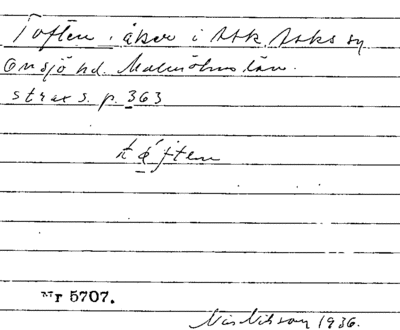 Toften, åker i Ask Asks sn
Onsjö hd. Malmöhus län.
strax s. p. 363
tåften
Nr 5707.
Nils Nilsson 1936.